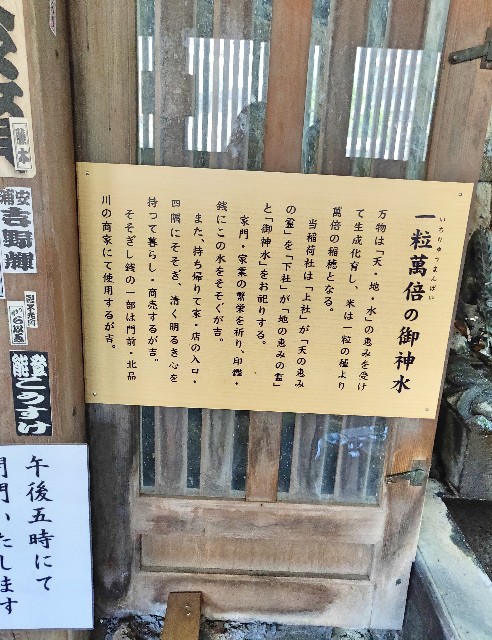 いちりゅうまんばい
一粒萬倍の御神水
万物は「天・地・水」の恵みを受け
て生成化育し、米は一粒の種より
萬倍の稲穂となる。
当稲荷社は「上社」が「天の恵み
の霊」を「下社」が「地の恵みの霊」
と「御神水」をお祀りする。
家門・家業の繁栄を祈り、印鑑・
銭にこの水をそそぐが吉。
また、持ち帰りて家・店の入口・
四隅にそそぎ、清く明るき心を
持つて暮らし・商売するが吉。
そそぎし銭の一部は門前・北品
川の商家にて使用するが吉。
藤本
浦安
吉野輝
能登こうすけ
午後五時にて
閉門いたします